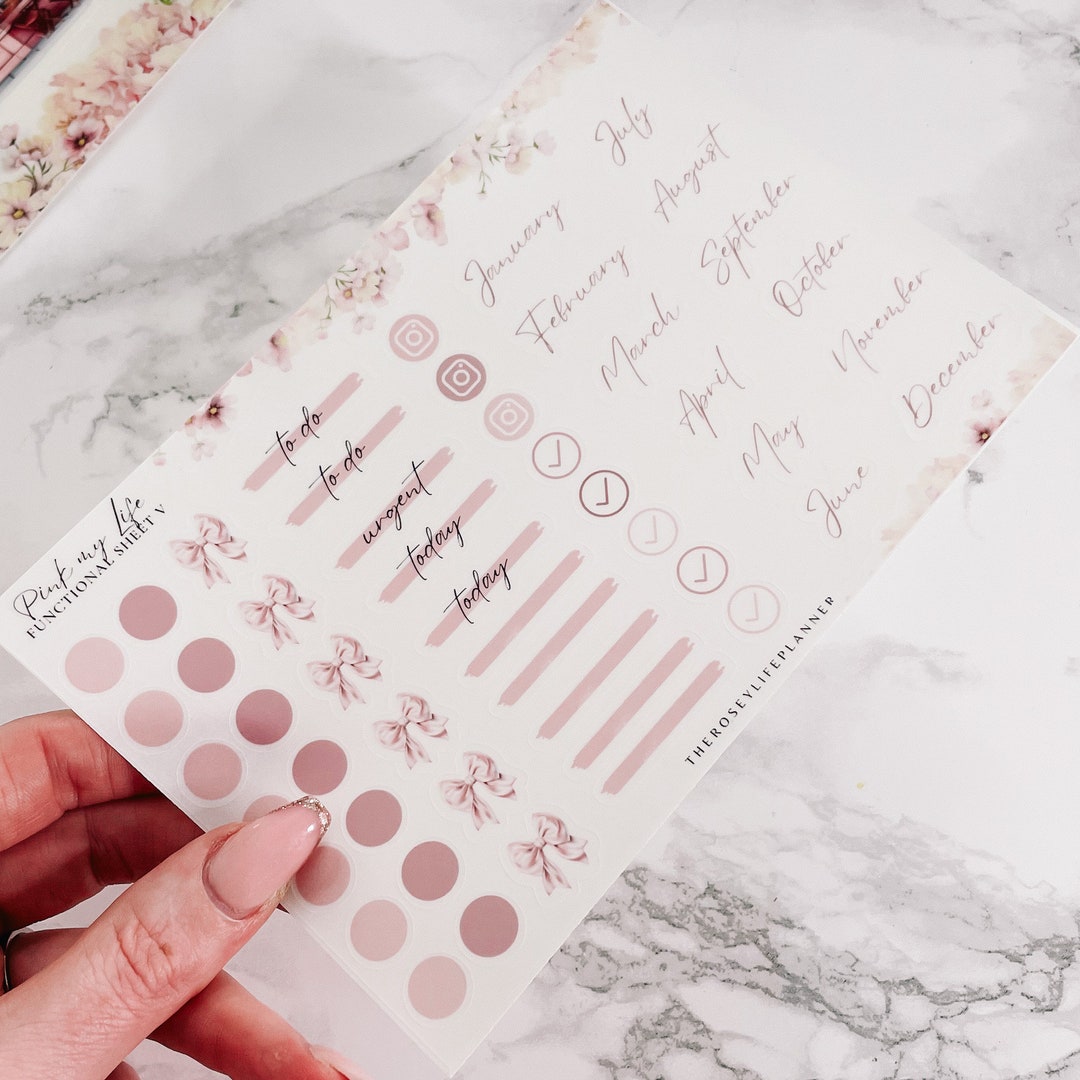 Pink my Life
FUNCTIONAL SHEET V
to do
to do
urgent
today
today
January
February
March
April
May
June
July
August
September
October
November
December
THEROSEYLIFEPLANNER